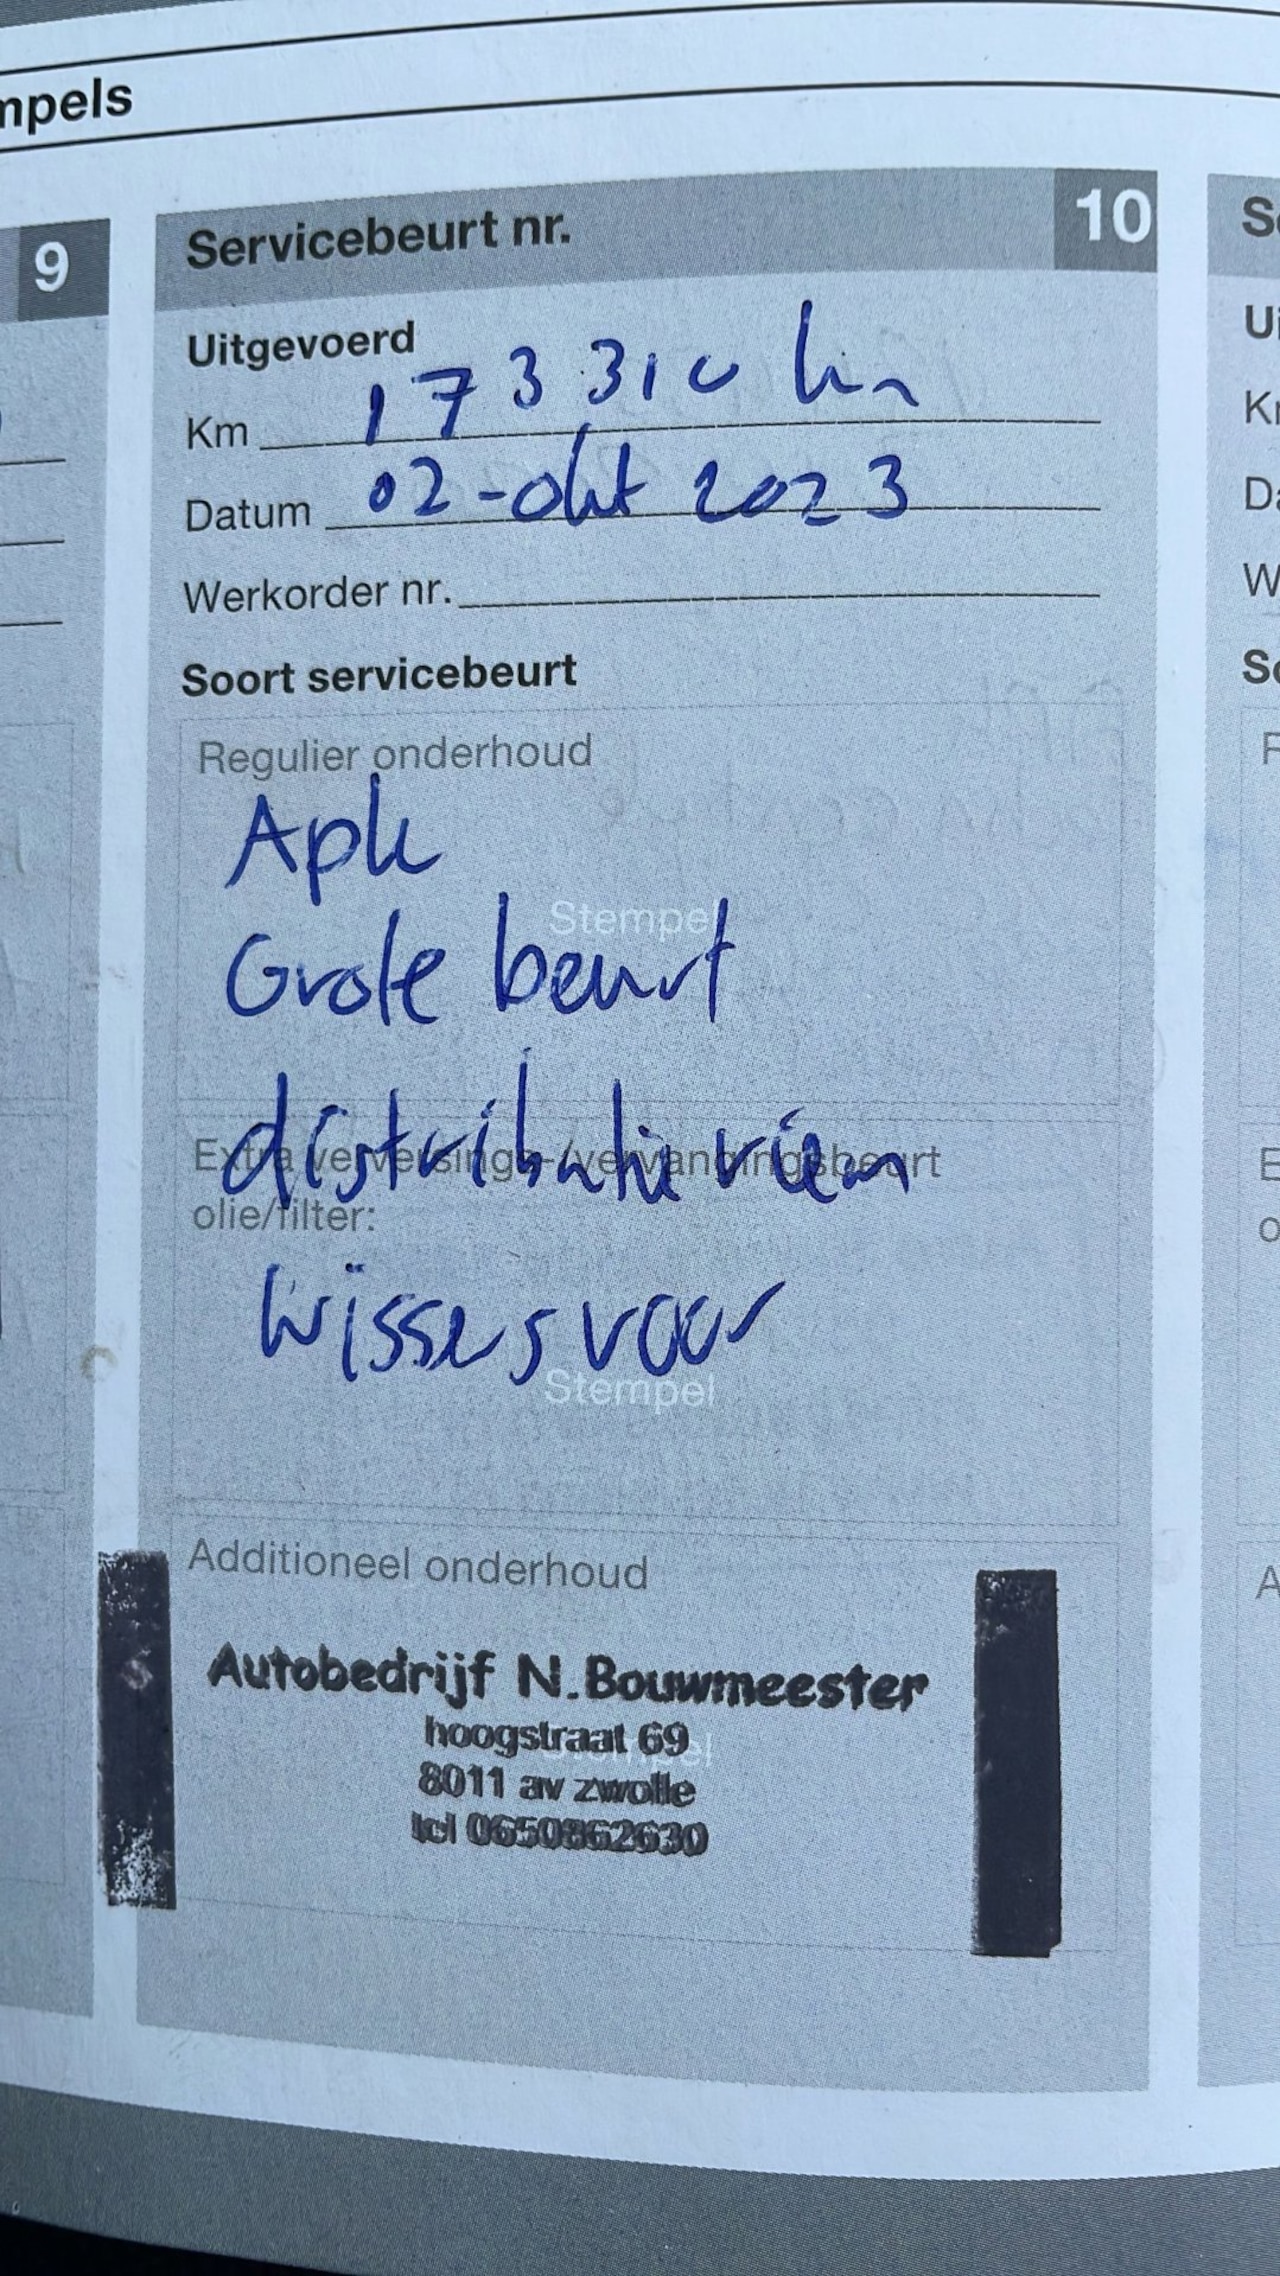 mpels
9
Servicebeurt nr. 10
Uitgevoerd
Km 173310 km
Datum 02-okt 2023
Werkorder nr.
Soort servicebeurt
Regulier onderhoud
Apk
Stempel
Grote beurt
distributie riem
Extra verversings-/vervangingsbeurt
olie/filter:
Wissers voor
Stempel
Additioneel onderhoud
Autobedrijf N.Bouwmeester
hoogstraat 69
8011 av zwolle
tel 0650862630